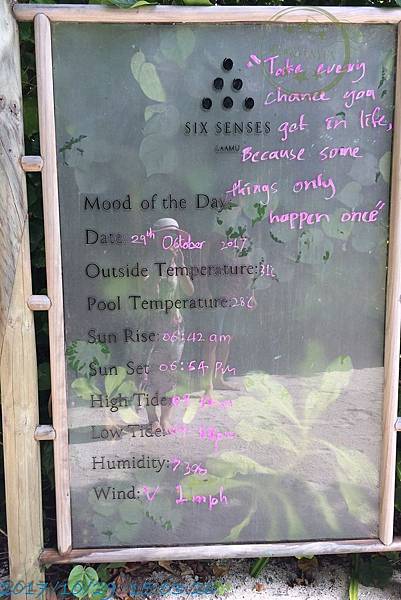 "Take every
chance you
SIX SENSES
LAAMU
got in life,
Because some
things only
happen once"
Mood of the Day:
Date: 29th October 2017
Outside Temperature: 31c
Pool Temperature: 28c
Sun Rise: 06:42 am
Sun Set 06:54 Pm
High Tide:
Low Tide:
Humidity: 73%
Wind: V 1 mph
2017/10/29